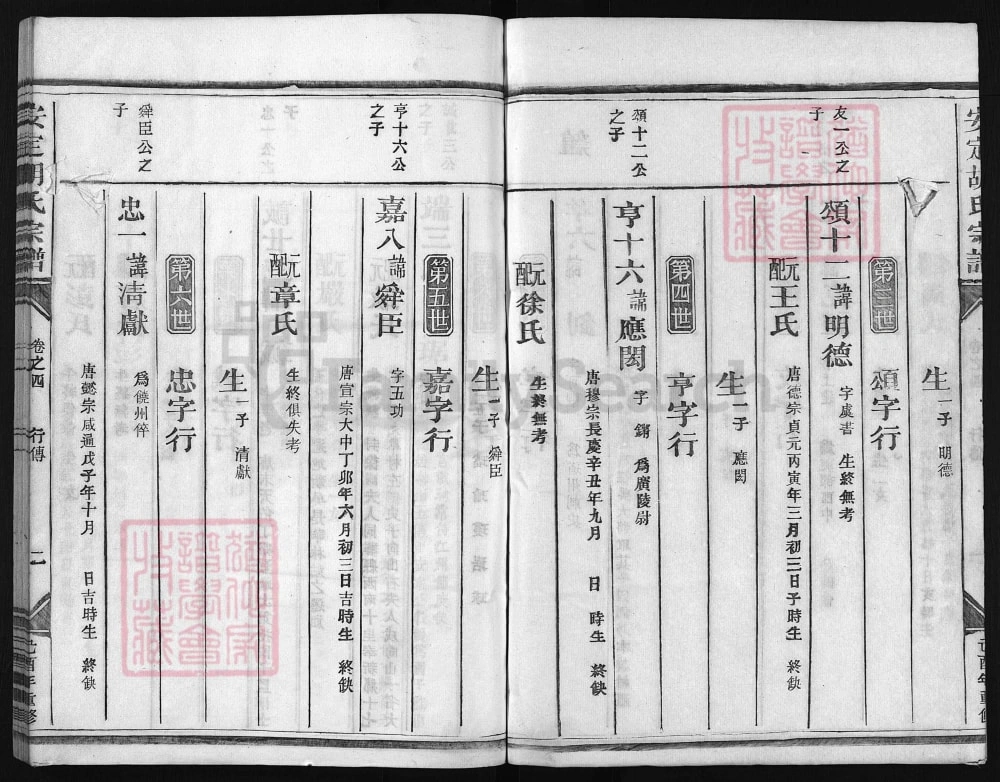 安定胡氏宗譜
己酉年重修
生一子 明德
第三世
頌字行
友一公之子
頌十二 諱明德 字虞書 生終無考
配阮王氏 唐德宗貞元丙寅年三月初三日子時生 終缺
生一子 應閎
第四世
亨字行
頌十二公之子
亨十六 諱應閎 字鏘 為廣陵尉
唐穆宗長慶辛丑年九月 日 時生 終缺
配阮徐氏 生終無考
生一子 舜臣
第五世
嘉字行
亨十六公之子
嘉八 諱舜臣 字五功
唐宣宗大中丁卯年六月初三日吉時生 終缺
配阮章氏 生終俱失考
生一子 清獻
第六世
忠字行
舜臣公之子
忠一 諱清獻 為饒州倅
唐懿宗咸通戊子年十月 日吉時生 終缺
安定胡氏宗譜
卷之四
行傳
二
己酉年重修
FamilySearch